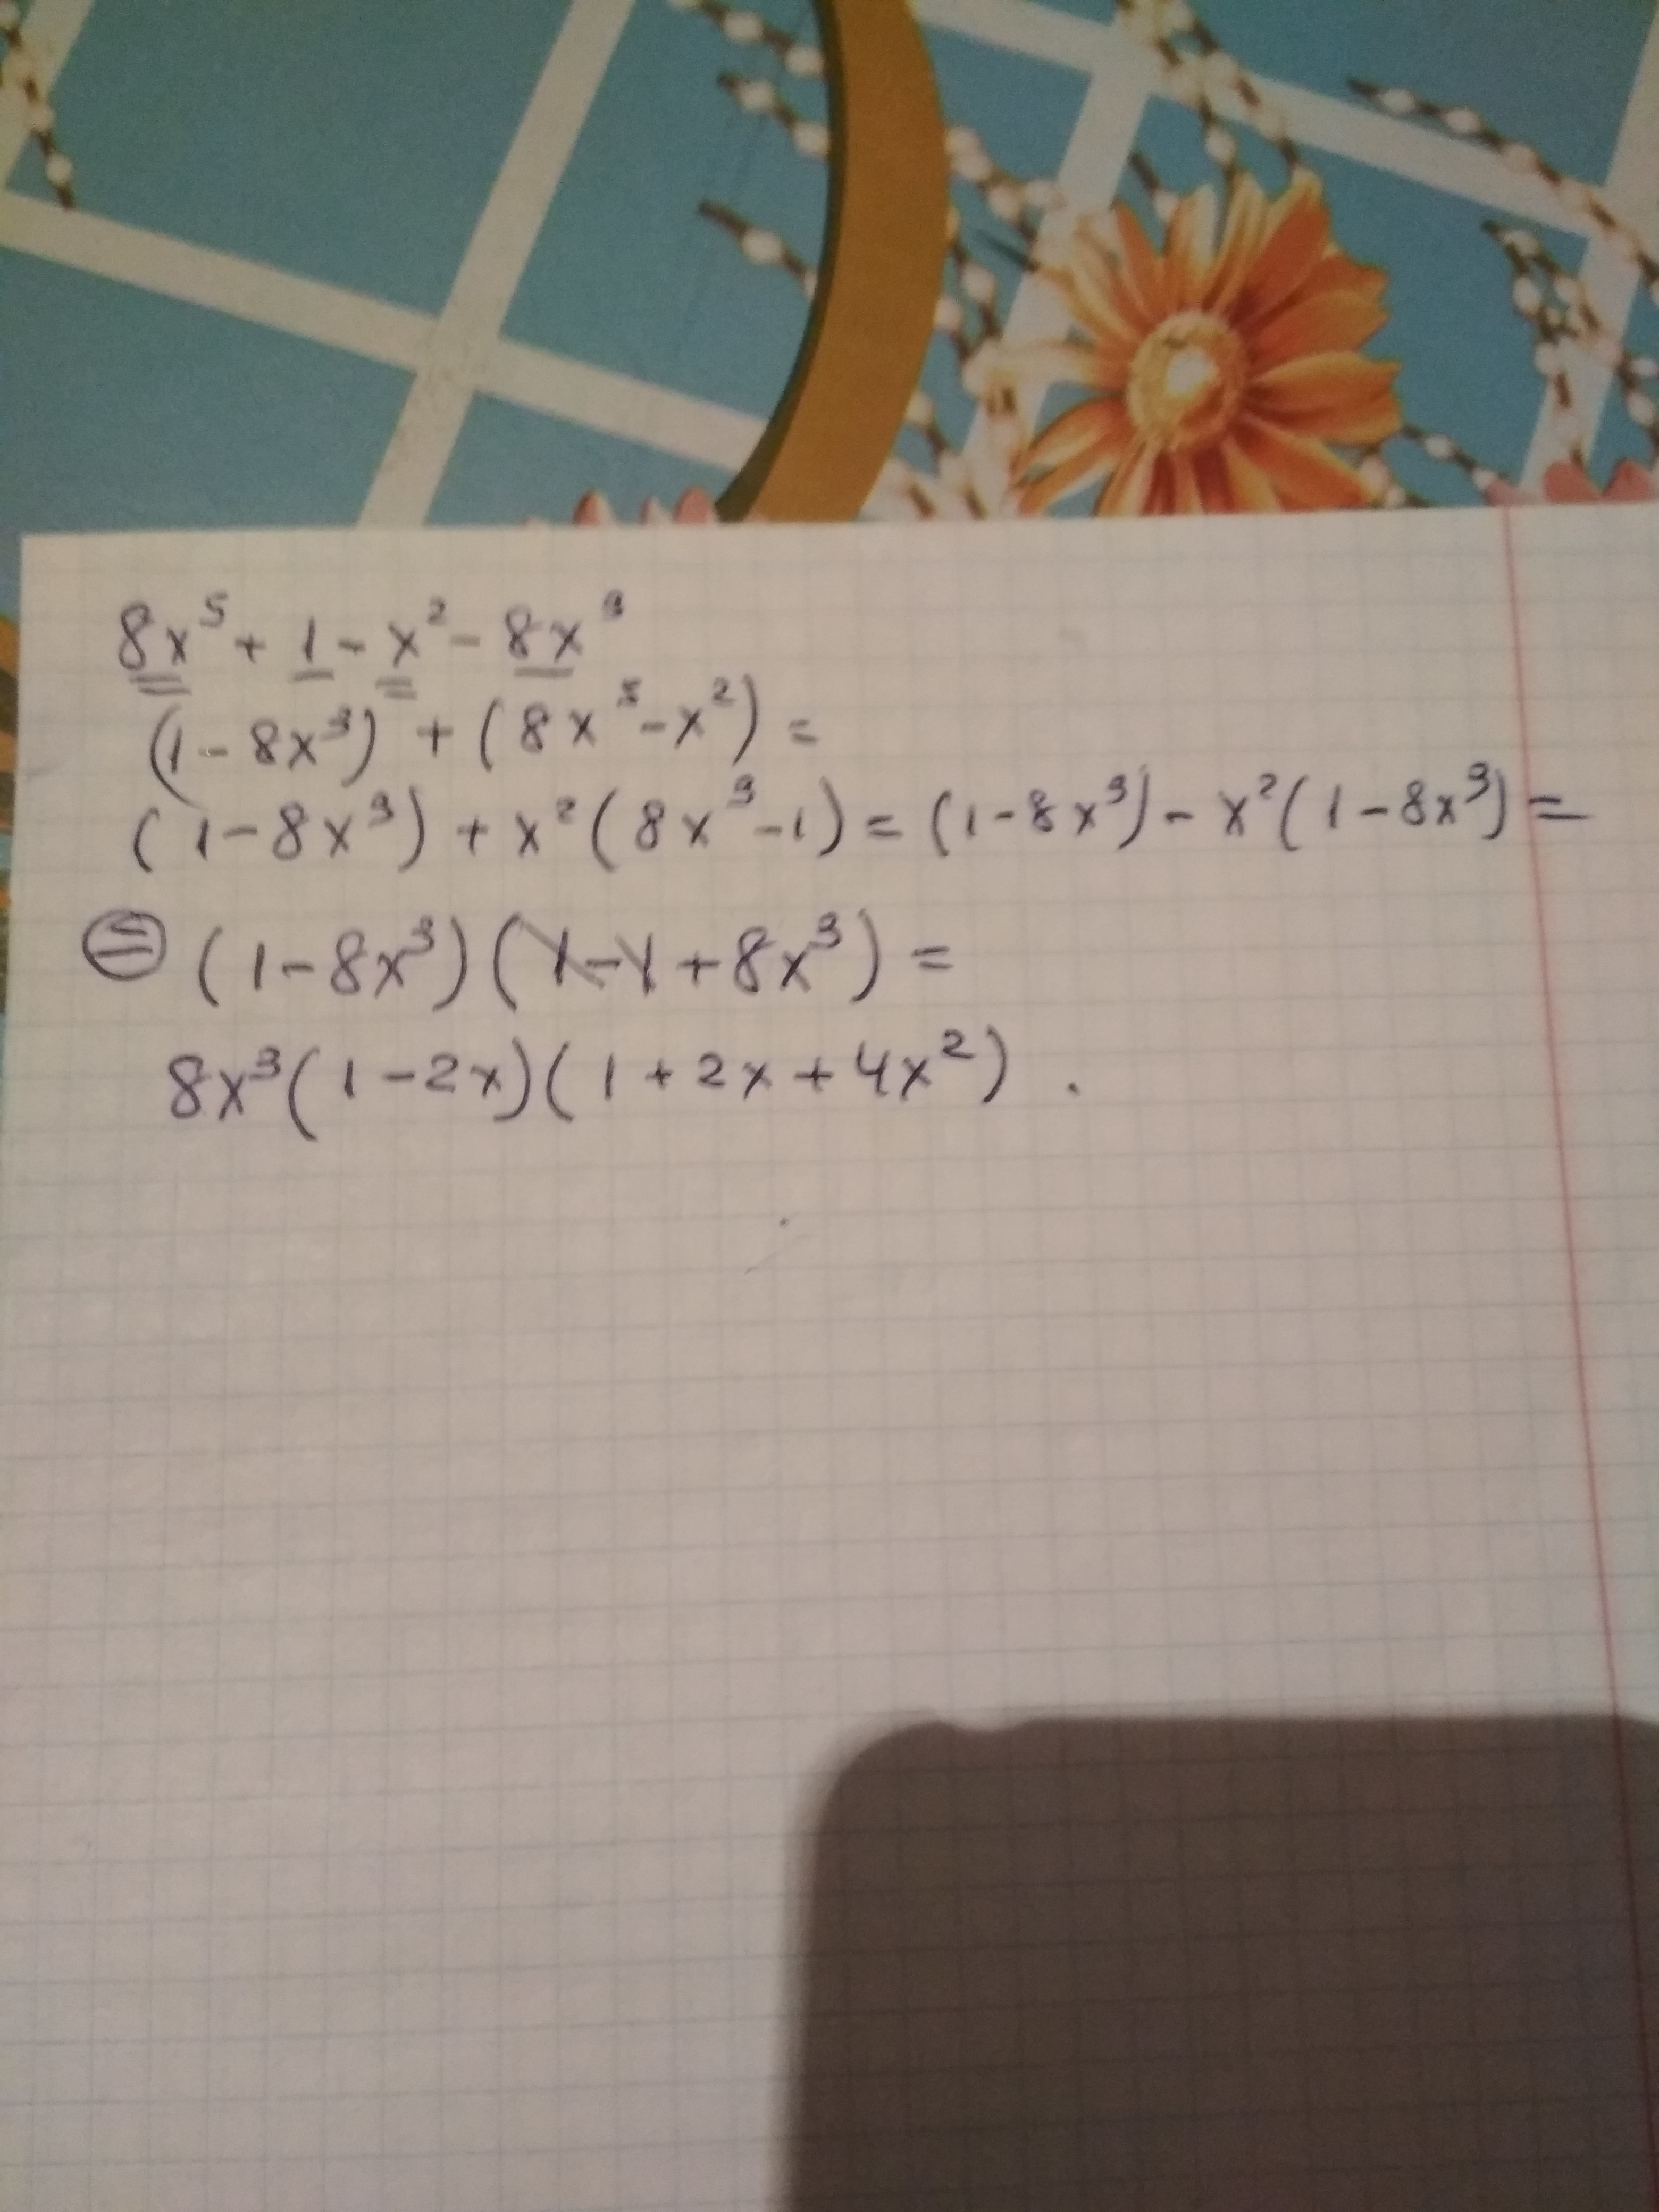 8x⁵ + 1 - x² - 8x³
(1 - 8x³) + (8x⁵ - x²) =
(1 - 8x³) + x²(8x³ - 1) = (1 - 8x³) - x²(1 - 8x³) =
= (1 - 8x³)(1 - 1 + 8x³) =
8x³(1 - 2x)(1 + 2x + 4x²).